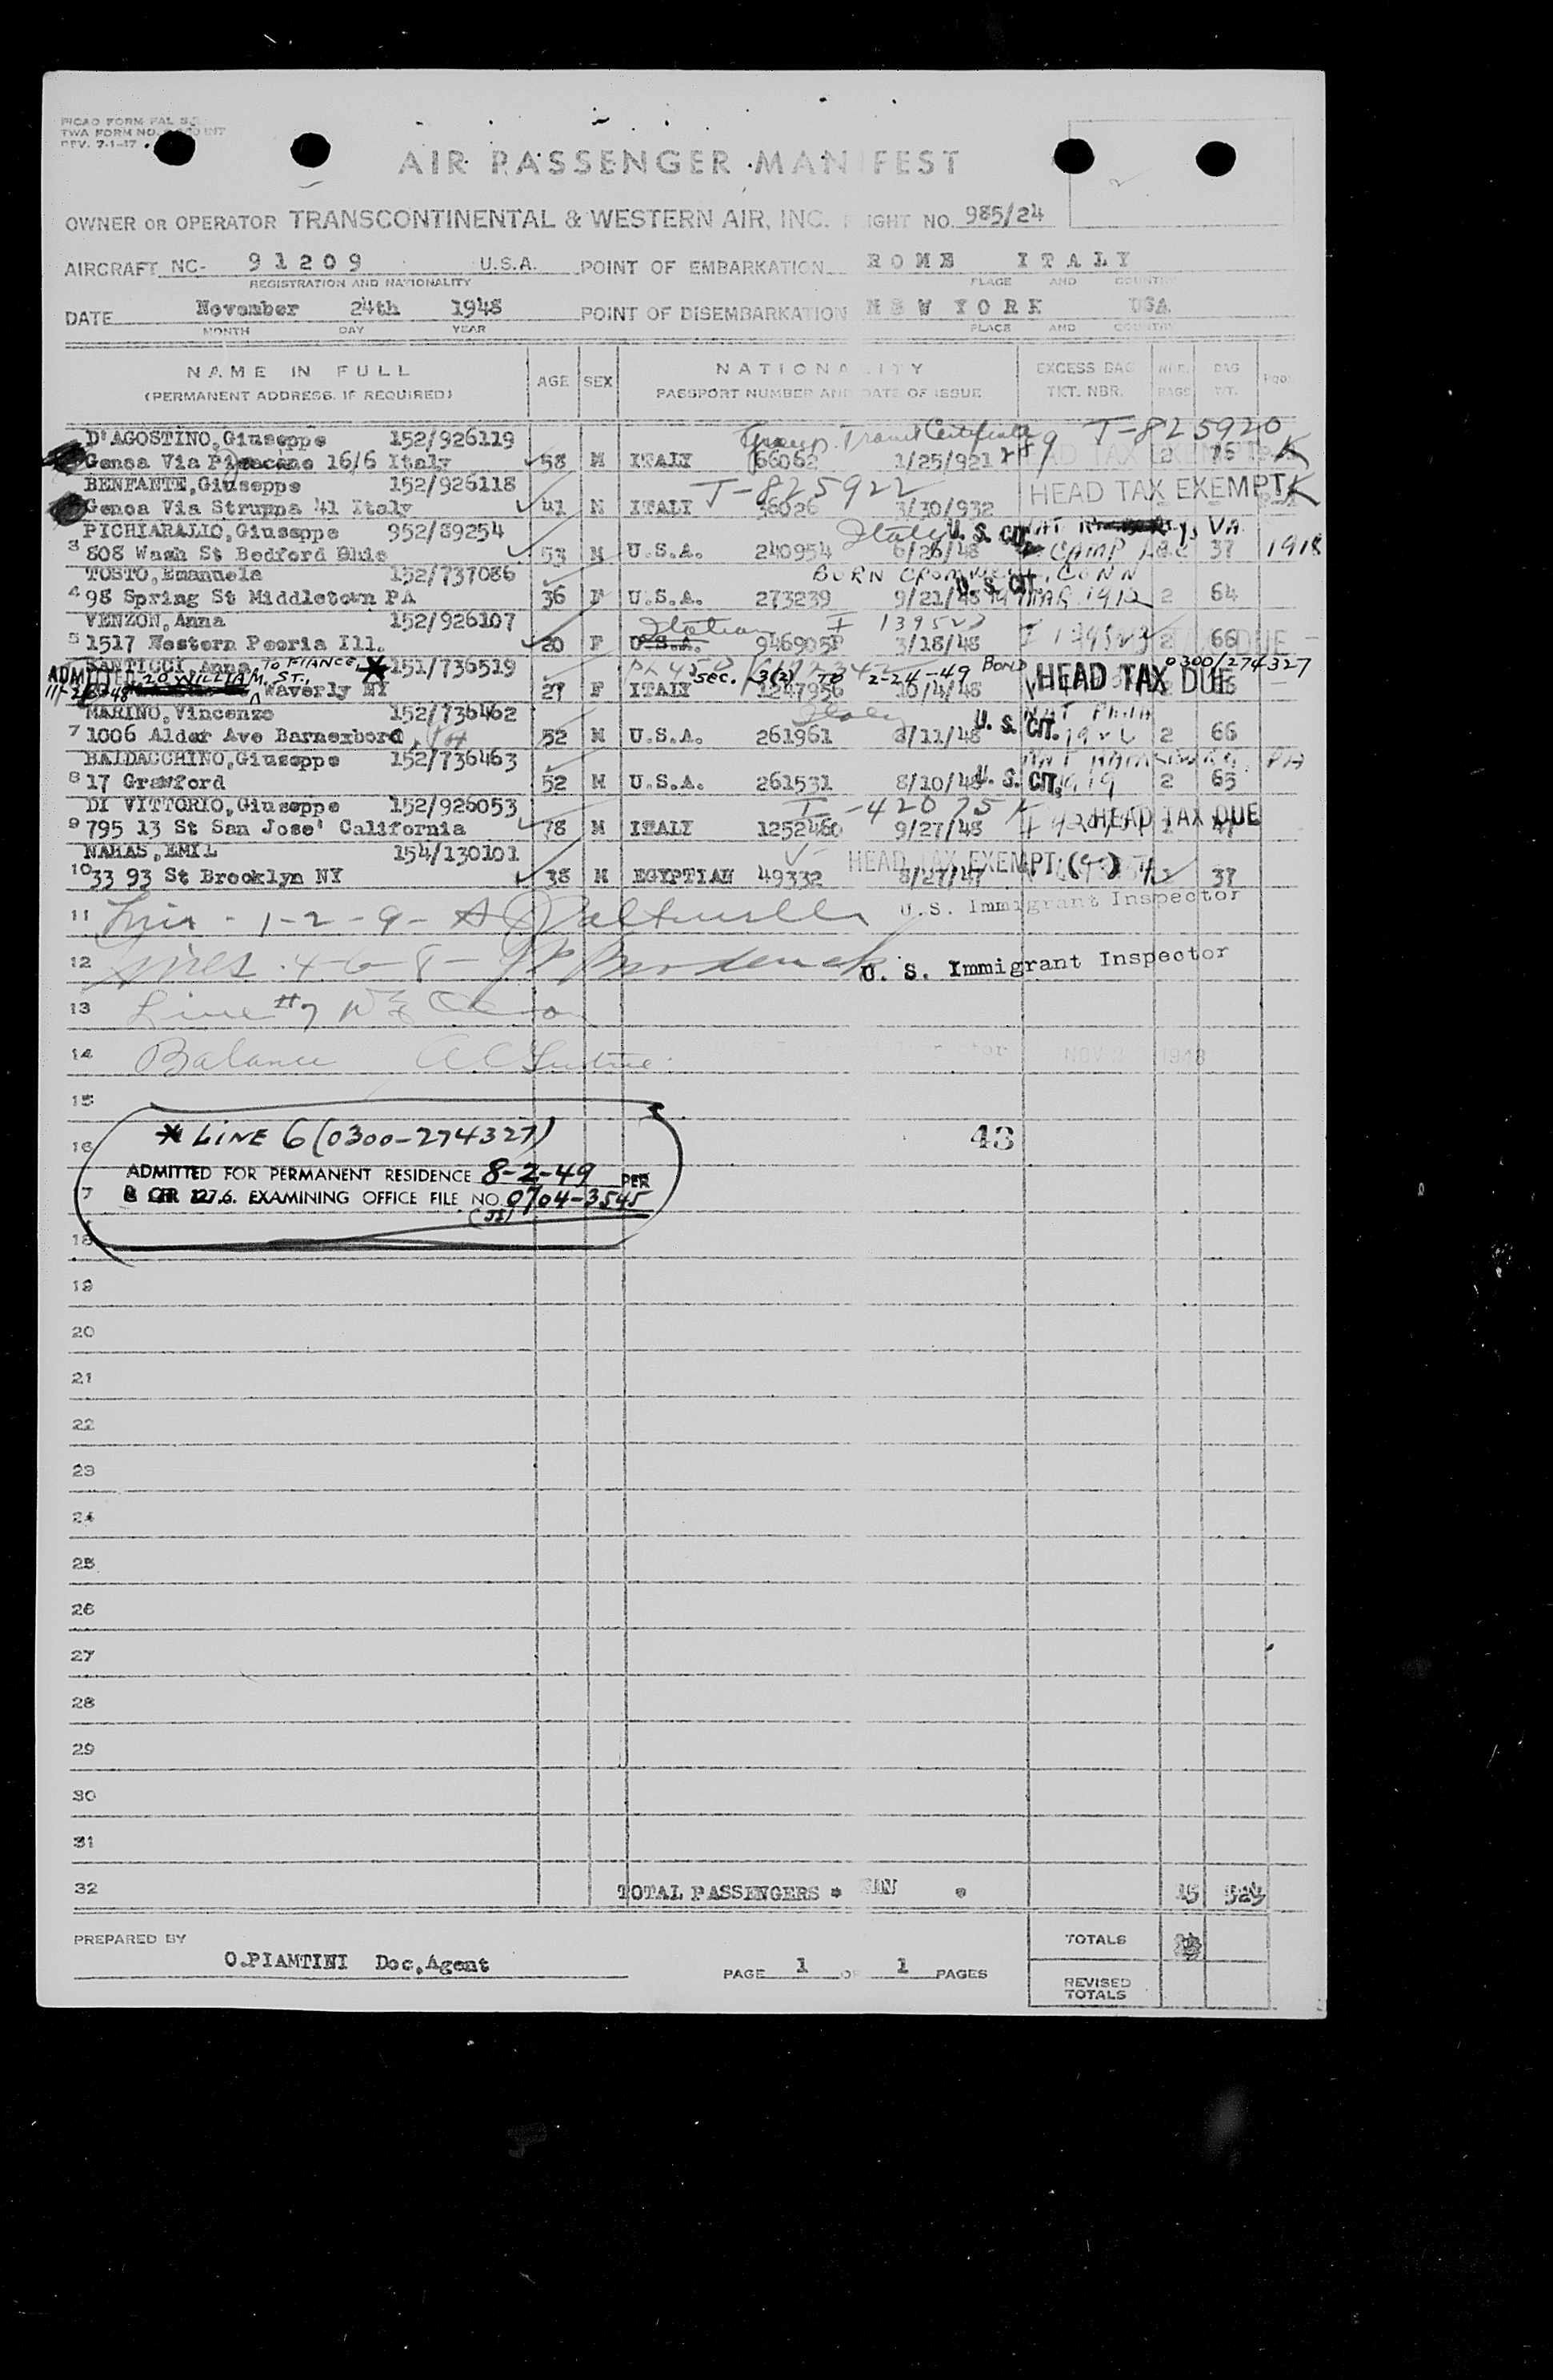 PICAO FORM PAL
TWA FORM NO. INT
REV. 7-1-47
AIR PASSENGER MANIFEST
OWNER OR OPERATOR TRANSCONTINENTAL & WESTERN AIR, INC. FLIGHT NO. 985/24
AIRCRAFT NC- 91209 U.S.A. POINT OF EMBARKATION ROME ITALY
REGISTRATION AND NATIONALITY PLACE AND COUNTRY
DATE November 24th 1948 POINT OF DISEMBARKATION NEW YORK USA
MONTH DAY YEAR PLACE AND COUNTRY
NAME IN FULL AGE SEX NATIONALITY EXCESS BAG NBR. BAG
(PERMANENT ADDRESS, IF REQUIRED) PASSPORT NUMBER AND DATE OF ISSUE TKT. NBR. BAGS WT.
D'AGOSTINO, Giuseppe 152/926119 Transit Certificate T-825920
Genoa Via 16/6 Italy 58 M ITALY 66062 1/25/921 2 76 K
BENFANTE, Giuseppe 152/926118 T-825922 HEAD TAX EXEMPT K
Genoa Via Struppa 41 Italy 41 M ITALY 36026 3/30/932
PICHIARALIO, Giuseppe 952/89254 Italy U. S. CIT. NAT VA.
3 808 Wash St Bedford Ohio 53 M U.S.A. 240954 6/26/48 CAMP 37 1918
TOSTO, Emanuela 152/737086 BORN CROMWELL, CONN
4 98 Spring St Middletown PA 36 F U.S.A. 273239 9/21/48 U. S. CIT. MAR. 1912 2 64
VENZON, Anna 152/926107 Italian I 139523
5 1517 Western Peoria Ill. 20 F U.S.A. 946905P 3/18/48 I 139523 2 66 DUE
SANTICCI, Anna, TO FIANCE, * 151/736519 PL 450 BOND 0300/274327
ADMITTED 20 WILLIAM ST., Waverly NY 27 F ITALY SEC. 3(2) TO 2-24-49 1247956 10/4/48 HEAD TAX DUE
MARINO, Vincenzo 152/736462 Italy NAT PHIA
7 1006 Alder Ave Barnesboro, PA 52 M U.S.A. 261961 8/11/48 U. S. CIT. 2 66
BALDACCHINO, Giuseppe 152/736463 NAT PA
8 17 Crawford 52 M U.S.A. 261531 8/10/48 U. S. CIT. 1919 2 65
DI VITTORIO, Giuseppe 152/926053 I-42075
9 795 13 St San Jose' California 78 M ITALY 1252460 9/27/48 HEAD TAX DUE 47
NAHAS, EMIL 154/130101 HEAD TAX EXEMPT
10 33 93 St Brooklyn NY 38 M EGYPTIAN 49332 8/27/47 2 37
11 1-2-9- U.S. Immigrant Inspector
12 Lines 4-6-8- U. S. Immigrant Inspector
13 Line #7
14 Balance
15
16 * LINE 6 (0300-274327) 43
ADMITTED FOR PERMANENT RESIDENCE 8-2-49 PER
17 8 CFR 127.6. EXAMINING OFFICE FILE NO. 0704-3545
18
19
20
21
22
23
24
25
26
27
28
29
30
31
32 TOTAL PASSENGERS * * 15
PREPARED BY O.PIAMTINI Doc.Agent TOTALS
PAGE 1 OF 1 PAGES REVISED TOTALS